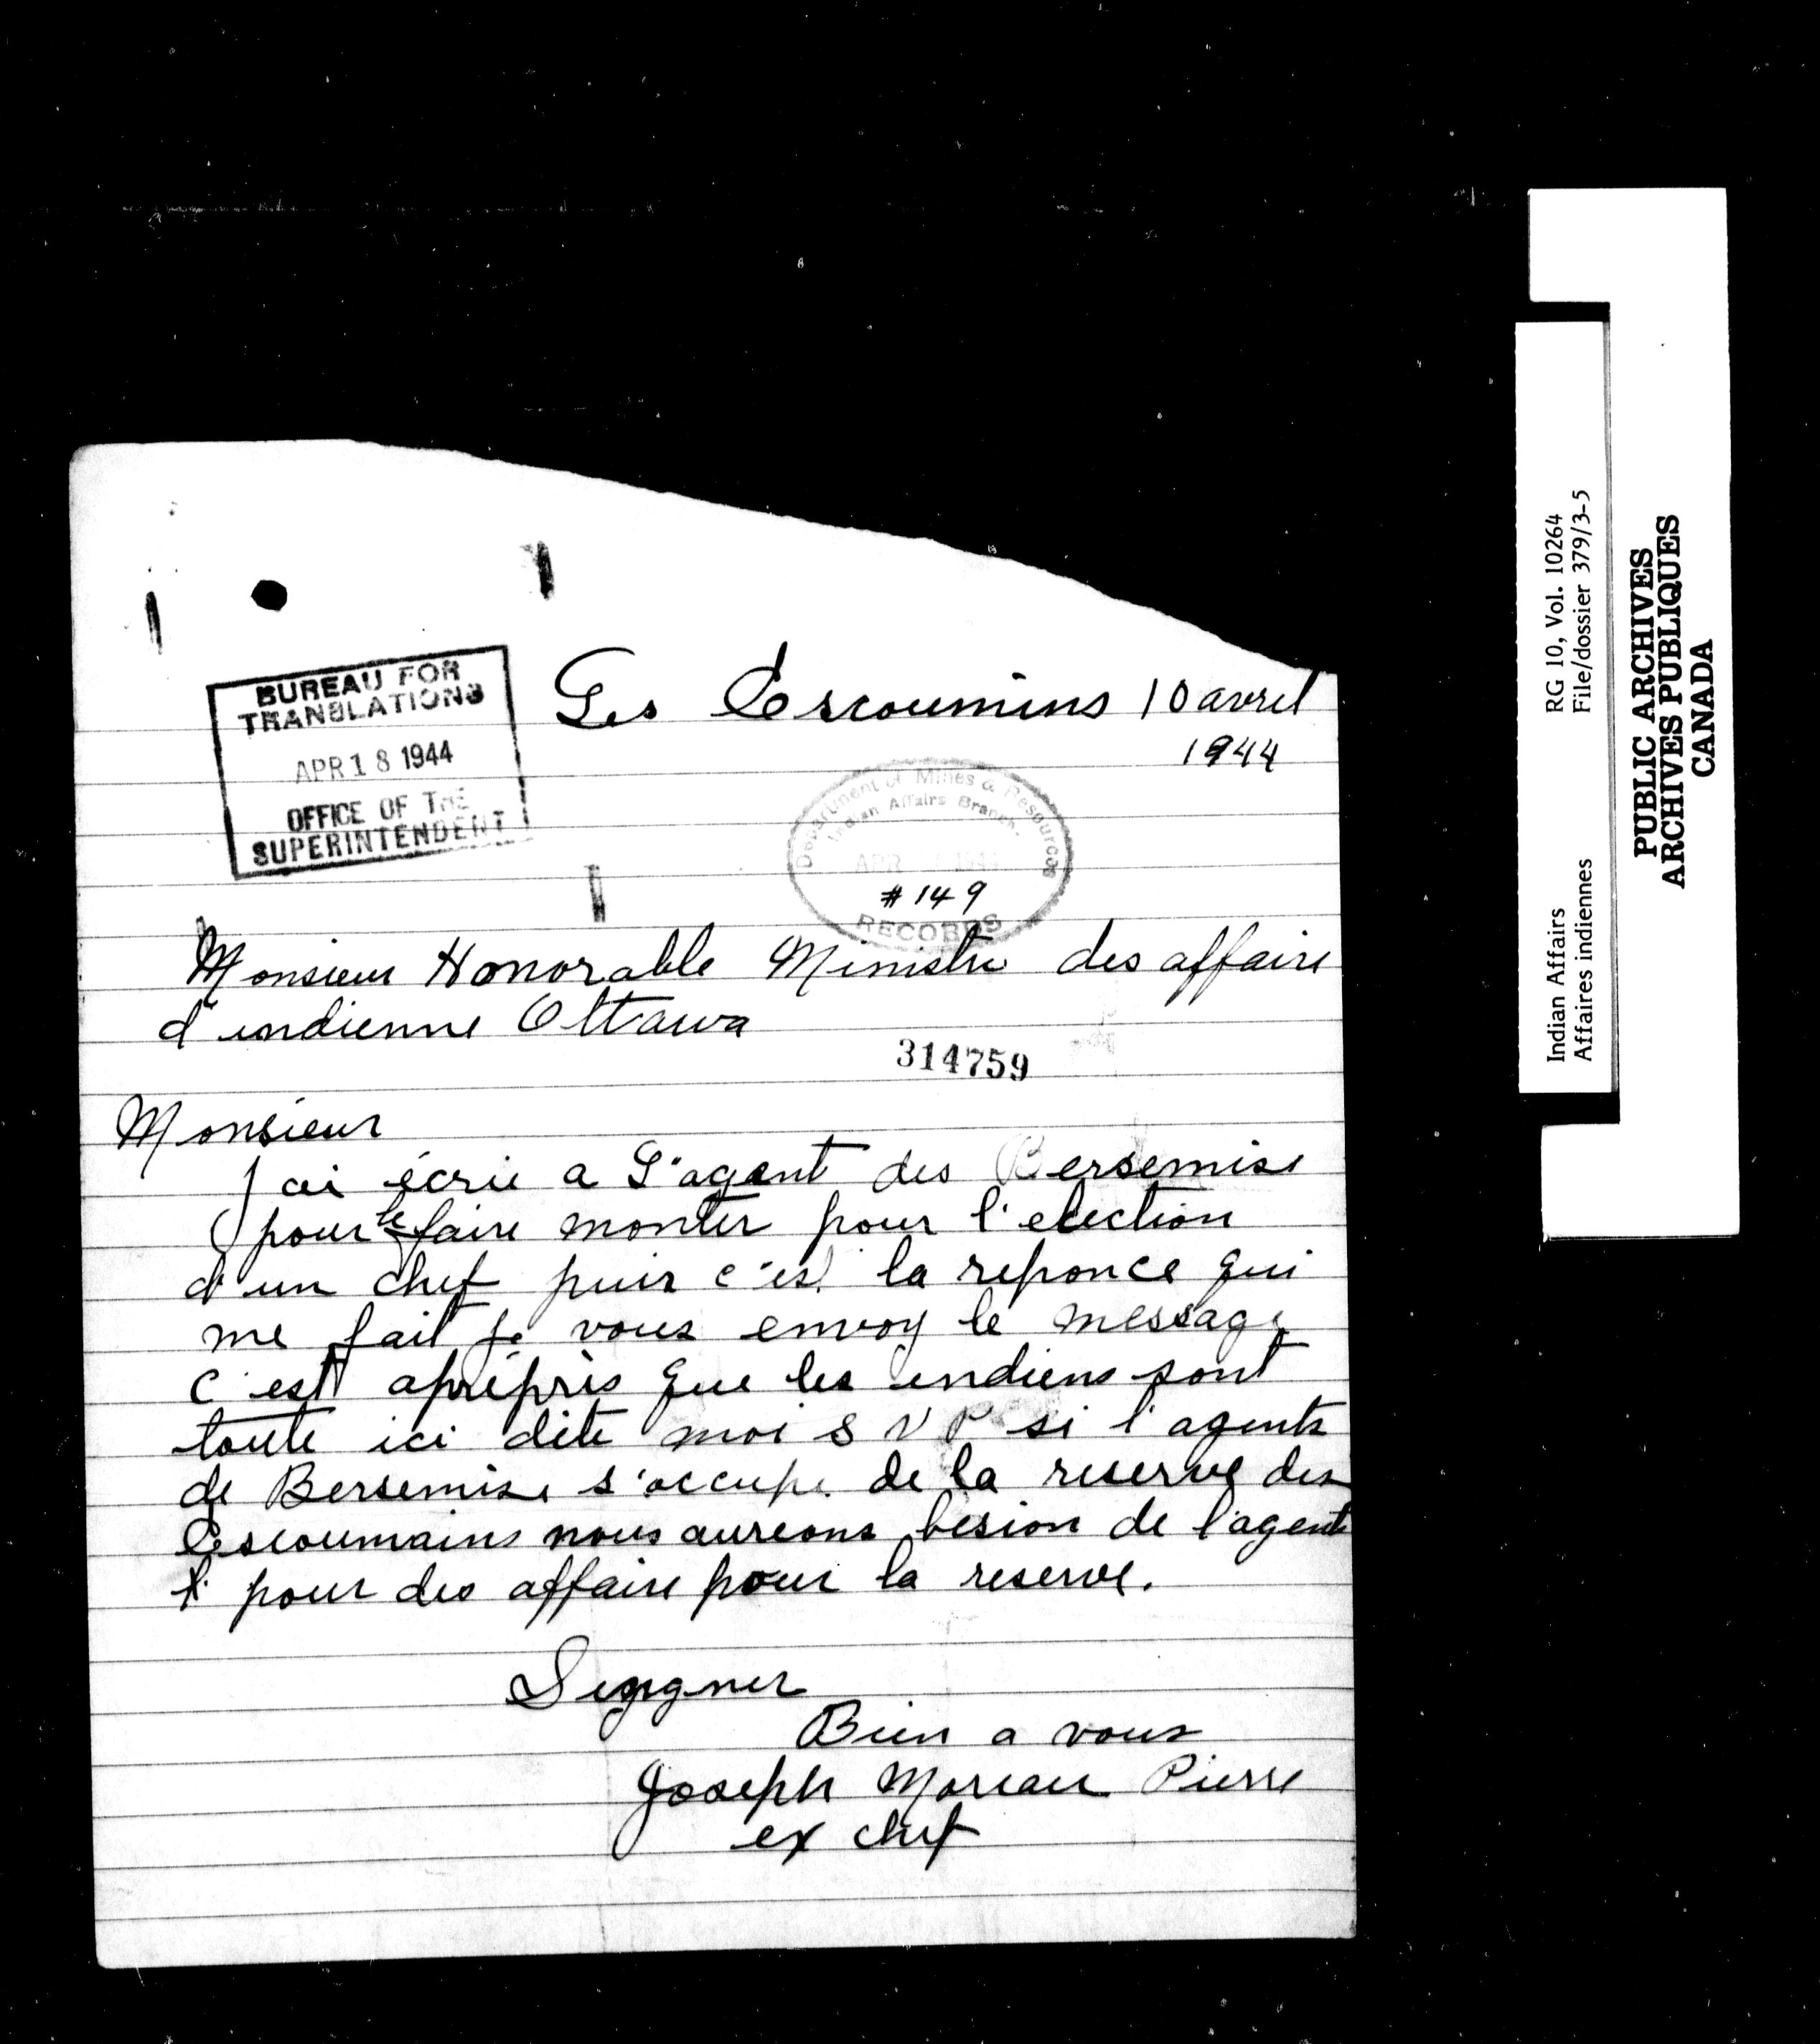 BUREAU FOR
TRANSLATIONS
APR 18 1944
OFFICE OF THE
SUPERINTENDENT
Les Escoumins 10 avril
1944
Department of Mines & Resources
Indian Affairs Branch
APR 1944
# 149
RECORDS
Monsieur Honorable Ministre des affaire
d'indienne Ottawa
314759
Monsieur
J ai écrie a L'agent des Bersemise
pour le faire monter pour l'election
d'un chef puis c'es la reponce qui
me fait je vous envoy le message
c'est apréprès que les indiens sont
toute ici dite moi S V P si l'agents
de Bersemise s'occupe de la reserve des
Escoumains nous aureons besion de l'agent
pour des affaire pour la reserve.
Seygner
Bien a vous
Joseph Moreau Pierre
ex chef
Indian Affairs RG 10, Vol. 10264
Affaires indiennes File/dossier 379/3-5
PUBLIC ARCHIVES
ARCHIVES PUBLIQUES
CANADA